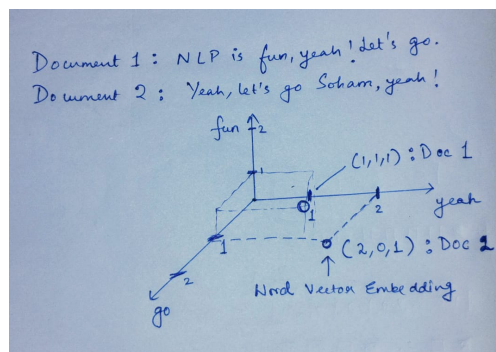 Document 1 : NLP is fun, yeah! Let's go.
Document 2 : Yeah, let's go Soham, yeah!
fun 2
1
(1,1,1) : Doc 1
1 2 yeah
1
(2,0,1) : Doc 2
2
Word Vector Embedding
go